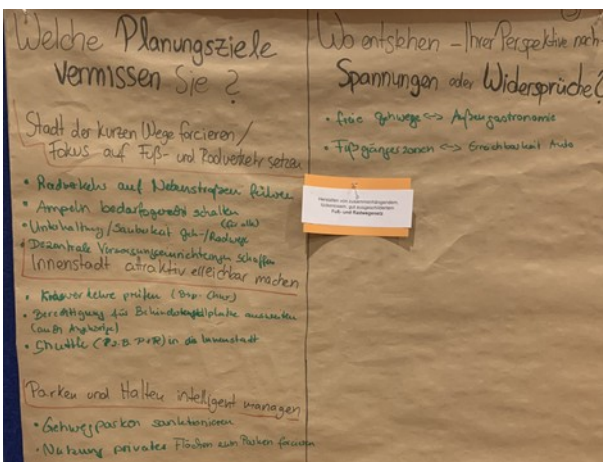 Welche Planungsziele
vermissen Sie?
Stadt der kurzen Wege forcieren/
Fokus auf Fuß- und Radverkehr setzen
• Radverkehr auf Nebenstraßen führen
• Ampeln bedarfsgerecht schalten
(für alle)
• Unterhaltung/Sauberkeit Geh-/Radwege
• Dezentrale Versorgungseinrichtungen schaffen
Innenstadt attraktiv erreichbar machen
• prüfen
• Berechtigung für Behindertenstellplätze ausweiten
(auch Angehörige)
• Shuttle (z.B. P+R) in die Innenstadt
Parken und Halten intelligent managen
• Gehwegparken sanktionieren
• Nutzung privater Flächen zum Parken forcieren
Wo entstehen – Ihrer Perspektive nach –
Spannungen oder Widersprüche?
• freie Gehwege <-> Außengastronomie
• Fußgängerzonen <-> Erreichbarkeit Auto
Fuß- und Radwegenetz